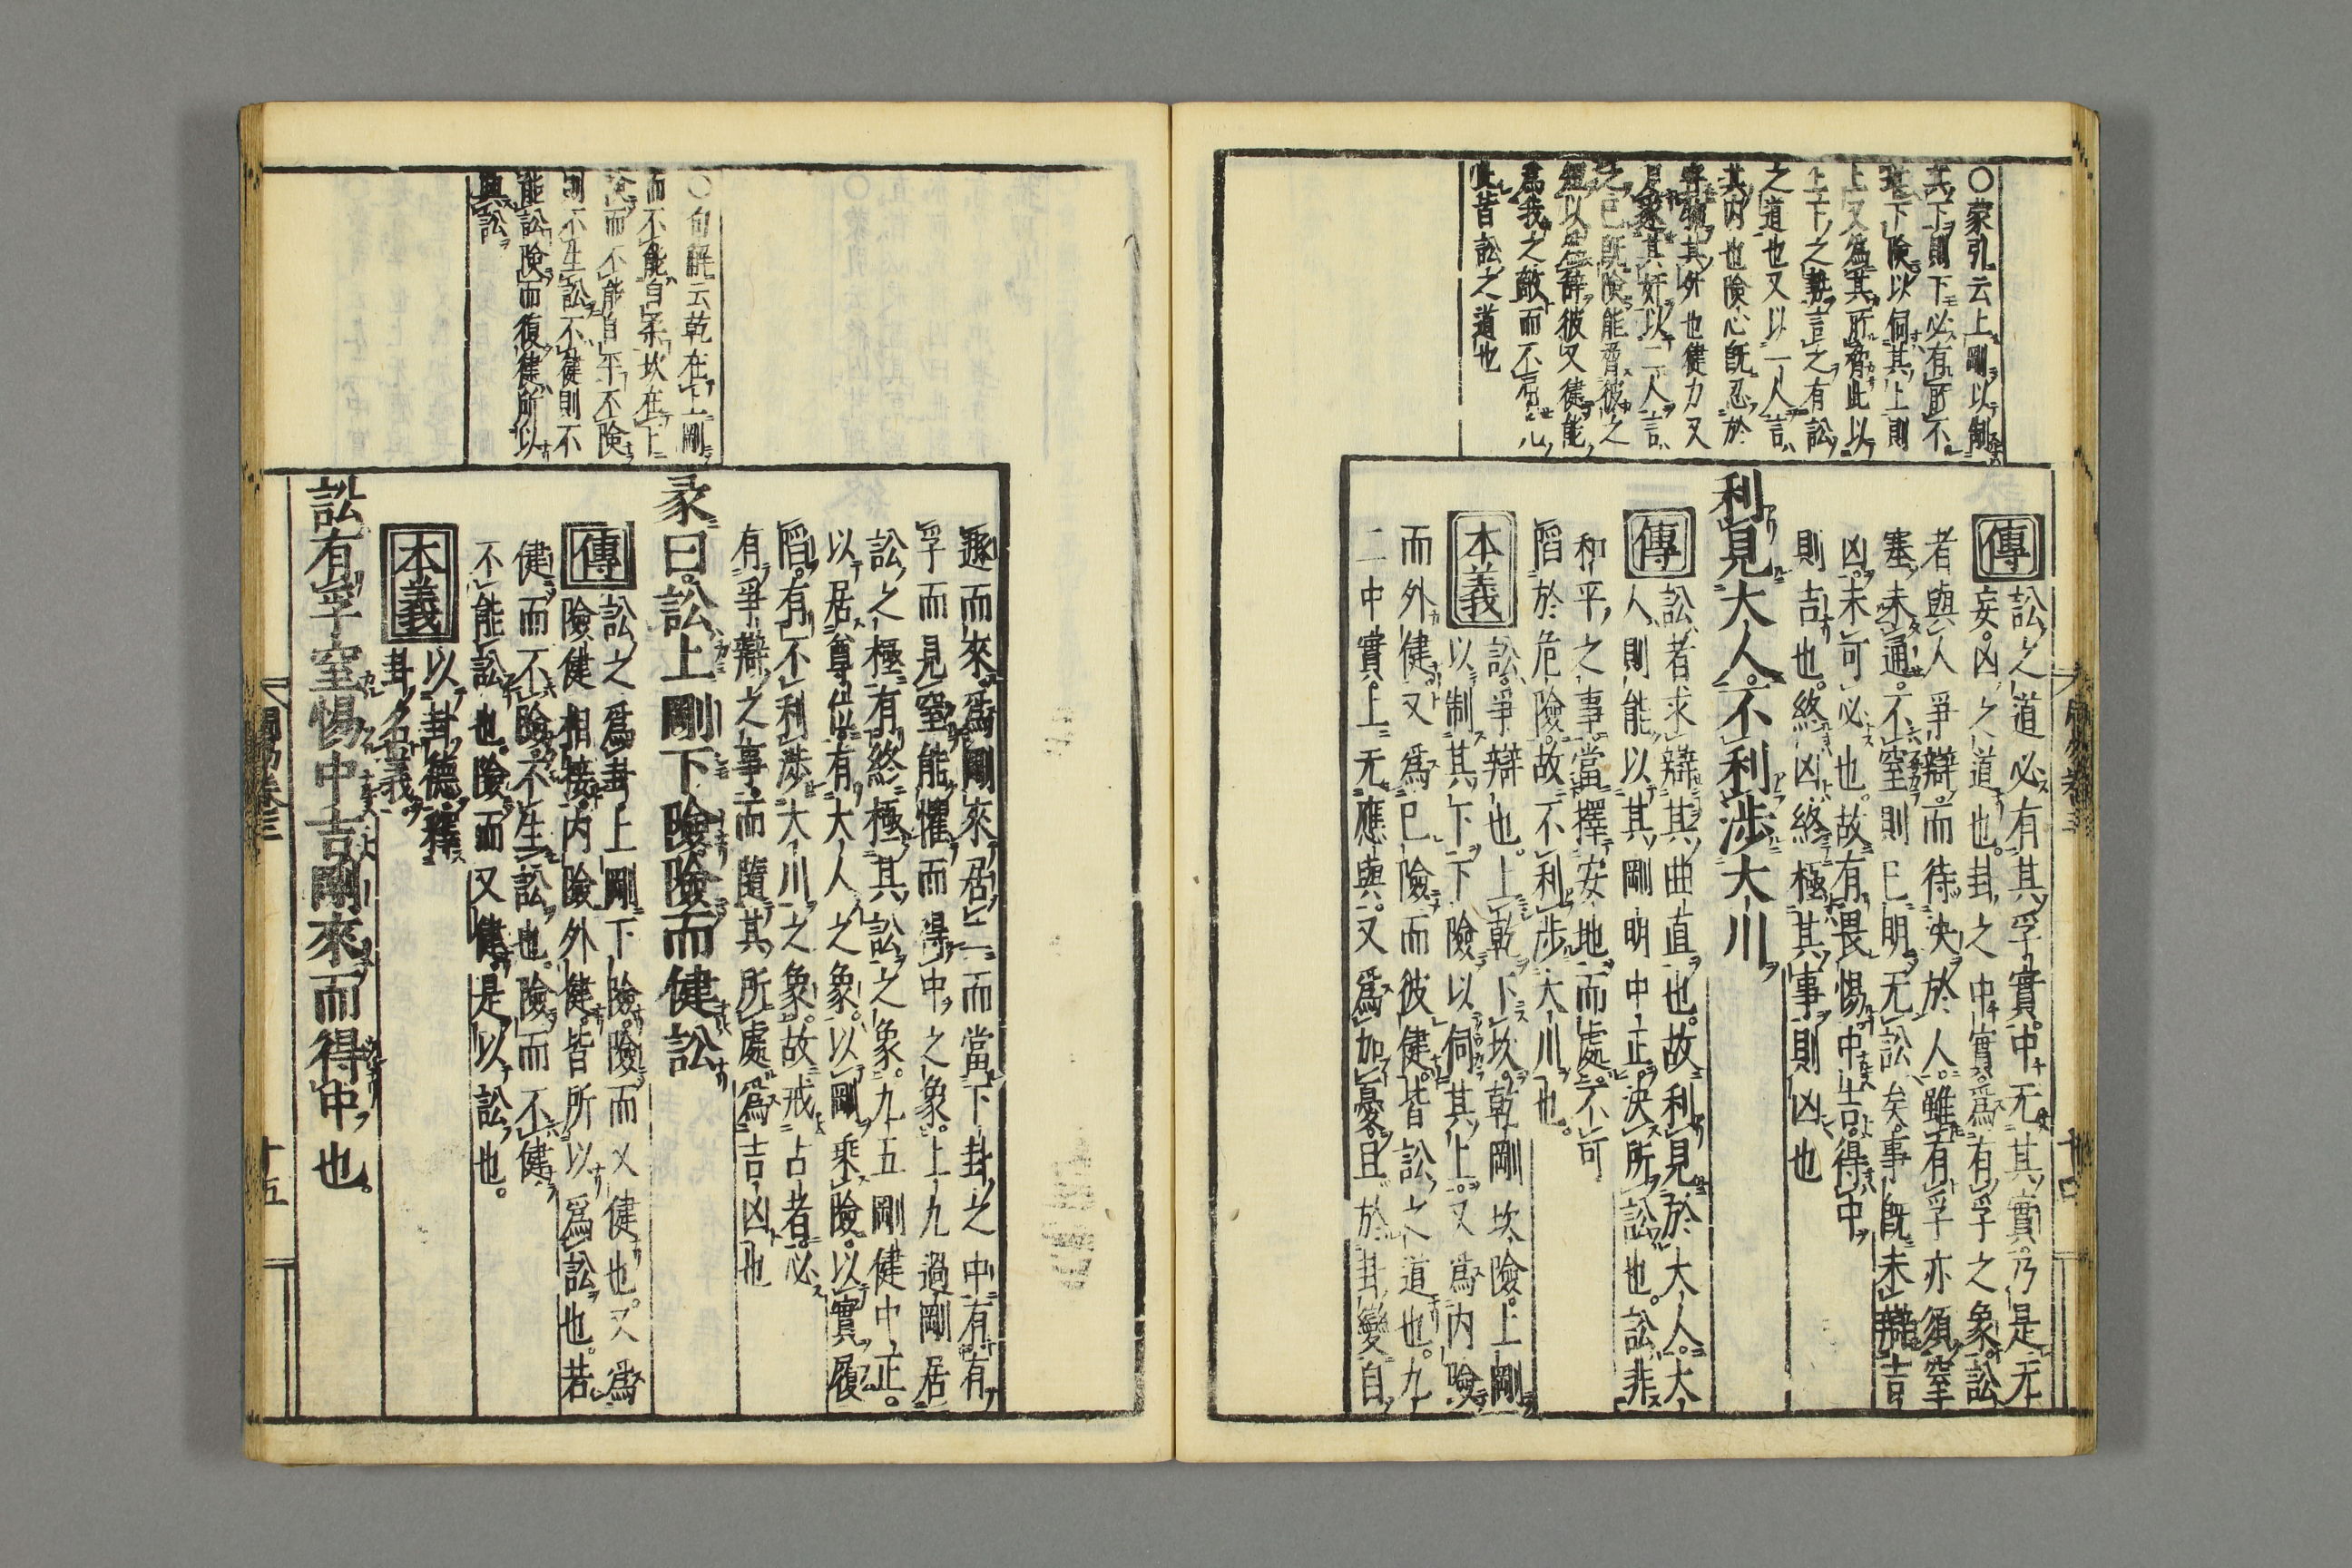 〇蒙引云上剛以制
其下則下必有所不
堪下險以伺其上則
上又爲其所脅此以
上下之勢言之有訟
之道也又以一人言
其内也險心既忍於
其外也健力又
其奸以二人言
之已既險能脅彼之
彼又健能
爲我之敵而不屈
此皆訟之道也
傳
訟之道必有其孚實中无其實乃是
妄凶之道也卦之中實爲有孚之象訟
者與人爭辯而待決於人雖有孚亦須窒
塞未通不窒則已明无訟矣事既未辯吉
凶未可必也故有畏惕中吉得中
則吉也終凶終極其事則凶也
利見大人不利涉大川
傳
訟者求辯其曲直也故利見於大人大
人則能以其剛明中正決所訟也訟非
和平之事當擇安地而處不可
陷於危險故不利涉大川也
本義
訟爭辯也上乾下坎乾剛坎險上剛
以制其下下險以伺其上又爲内險
而外健又爲已險而彼健皆訟之道也九
二中實上无應與又爲加憂且於卦變自
周易卷三
十四
〇句解云乾在上剛
而不能自柔坎在下
而不能自平不險
則不生訟不健則不
能訟險而復健所以
興訟
遯而來爲剛來居二而當下卦之中有有
孚而見窒能懼而得中之象上九過剛居
訟之極有終極其訟之象九五剛健中正
以居尊位有大人之象以剛乘險以實履
陷有不利涉大川之象故戒占者必
有爭辯之事而隨其所處爲吉凶也
彖曰訟上剛下險險而健訟
傳
訟之爲卦上剛下險險而又健也又爲
險健相接内險外健皆所以爲訟也若
健而不險不生訟也險而不健
不能訟也險而又健是以訟也
本義
以卦德釋
卦名義
訟有孚窒惕中吉剛來而得中也
周易卷三
十五